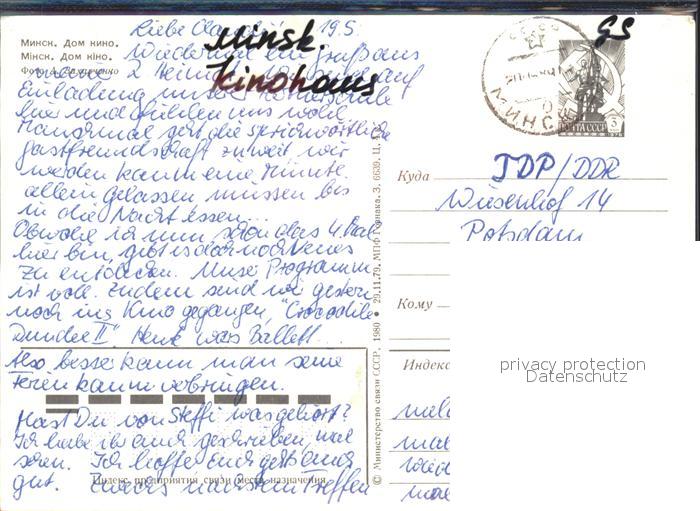 Минск. Дом кино.
Мінск. Дом кіно.
Фото А.
Minsk.
Kinohaus
Liebe 19.5.
Wiedermal ein Gruß aus
2. Heimat. auf
Einladung unserer
hier und fühlen uns wohl.
Manchmal geht die sprichwörtliche
Gastfreundschaft zu weit wir
werden kaum eine Minute
allein gelassen müssen bis
in die Nacht essen...
Obwohl ich nun schon das 4. Mal
hier bin, gibt es doch noch Neues
zu entdecken. Unser Programm
ist voll. Zudem sind wir gestern
noch ins Kino gegangen, "Crocodile
Dundee II". Heute was Ballett...
Also besser kann man seine
Ferien kaum verbringen.
Hast Du von Steffi was gehört?
Ich habe ihr auch geschrieben, mal
sehen. Ich hoffe Euch geht's auch
gut. nächstem Treffen
Индекс предприятия связи места назначения
© Министерство связи СССР, 1980 • 29.11.79. МПФ Гознака. З. 6639. Ц.
МИНСК
GS
ПОЧТА СССР
Куда
ГДР/DDR
Wiesenhof 14
Potsdam
Кому
Индекс
privacy protection
Datenschutz